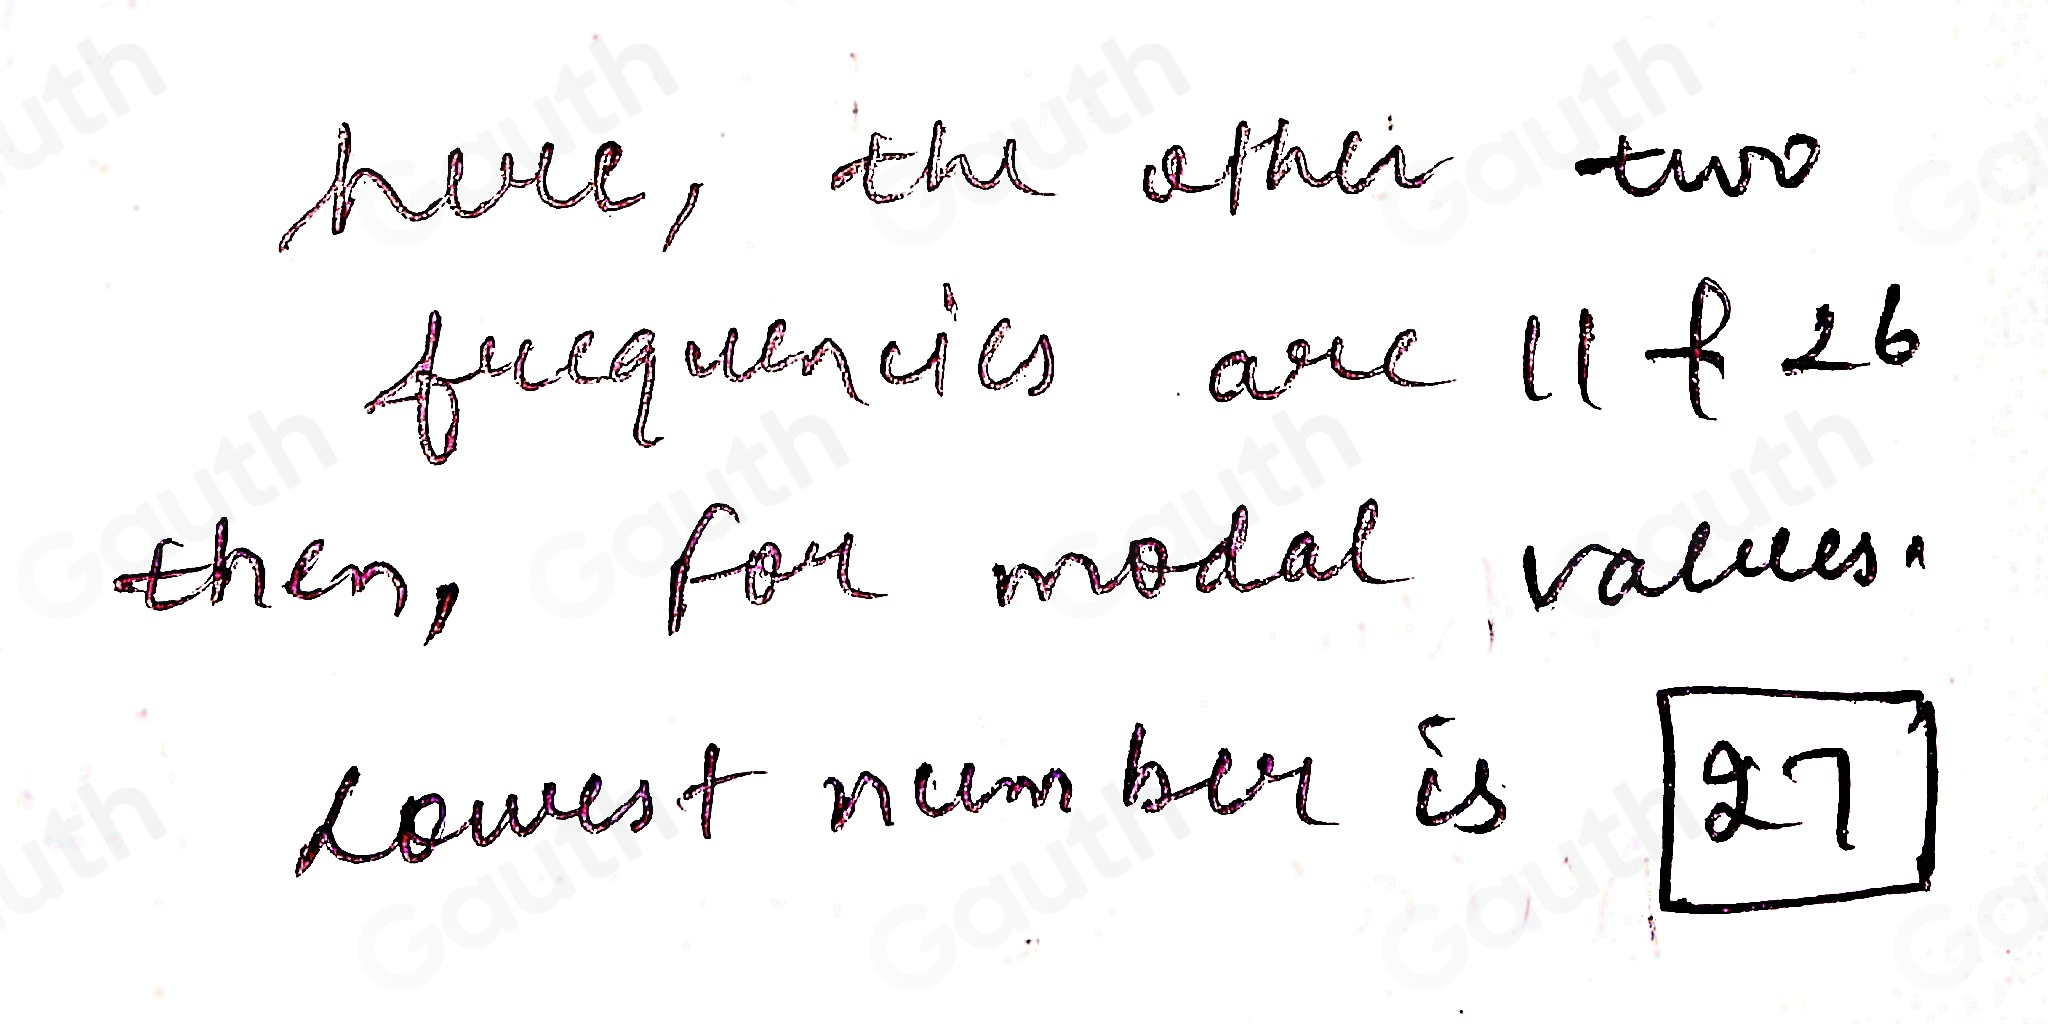 here, the other two
frequencies are 11 & 26
then, for modal values.
Lowest number is 27